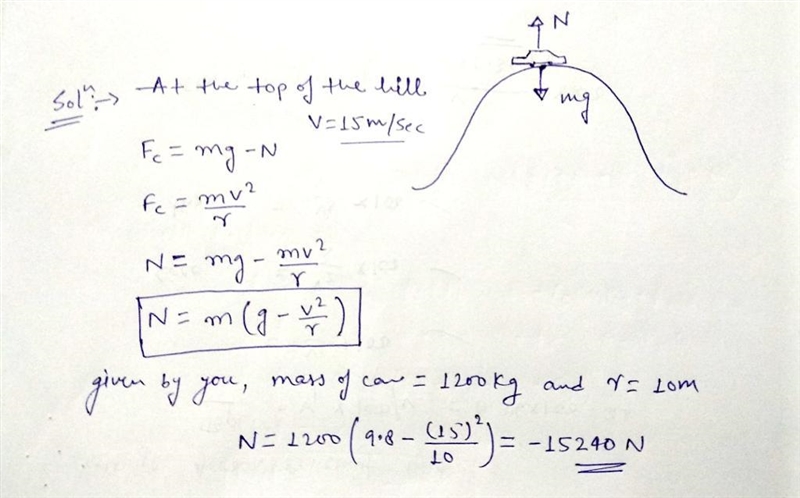 Solⁿ:→ At the top of the hill
V=15m/sec
Fc = mg - N
Fc = mv²/r
N = mg - mv²/r
N = m(g - v²/r)
given by you, mass of car = 1200kg and r = 10m
N = 1200(9.8 - (15)²/10) = -15240 N
N
mg